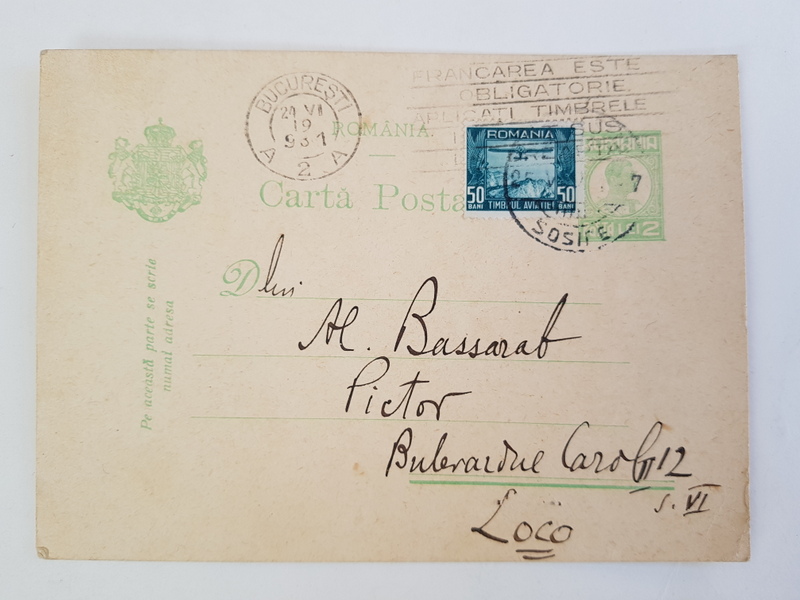 BUCUREȘTI
24 VI
19
9317
A 2 A
FRANCAREA ESTE
OBLIGATORIE
APLICAȚI TIMBRELE
SUS
ROMÂNIA.
Cartă Posta
ROMANIA
50 BANI TIMBRUL AVIAȚIEI 50 BANI
7
SOSIRE
LEI 2
Dlui
Al. Bassarab
Pictor
Bulevardul Carol II 12
s. VI
Loco
Pe această parte se scrie
numai adresa